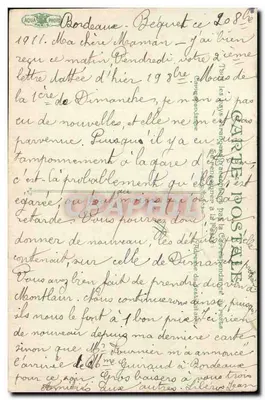 AQUA PHOTO
Bordeaux - Béquet ce 20 8bre
1911. Ma chère Maman - J'ai bien
reçu ce matin, Vendredi, votre 2ième
lettre datée d'hier 19 8bre. Mais de
la 1ère de Dimanche, je n'en ai pas
eu de nouvelles, et elle ne m'est pas
parvenue. Puisqu'il y a eu
tamponnement à la gare d'
c'est là probablement qu'elle
égarée
retardée. Vous pourrez donc
donner de nouveau, les détails
contenait, sur celle de Dimanche
Vous avez bien fait de prendre du
Montlaur. Nous continuerons aussi, puisqu'
ils nous le font à 1 bon prix. Rien
de nouveau depuis ma dernière carte
sinon que Mr Fournier m'a annoncé
l'arrivée de Mme Guiraud à Bordeaux
pour ce soir. Gros baisers à vous trois
amitiés aux autres. Jean
CARTE POSTALE
CPARAMA